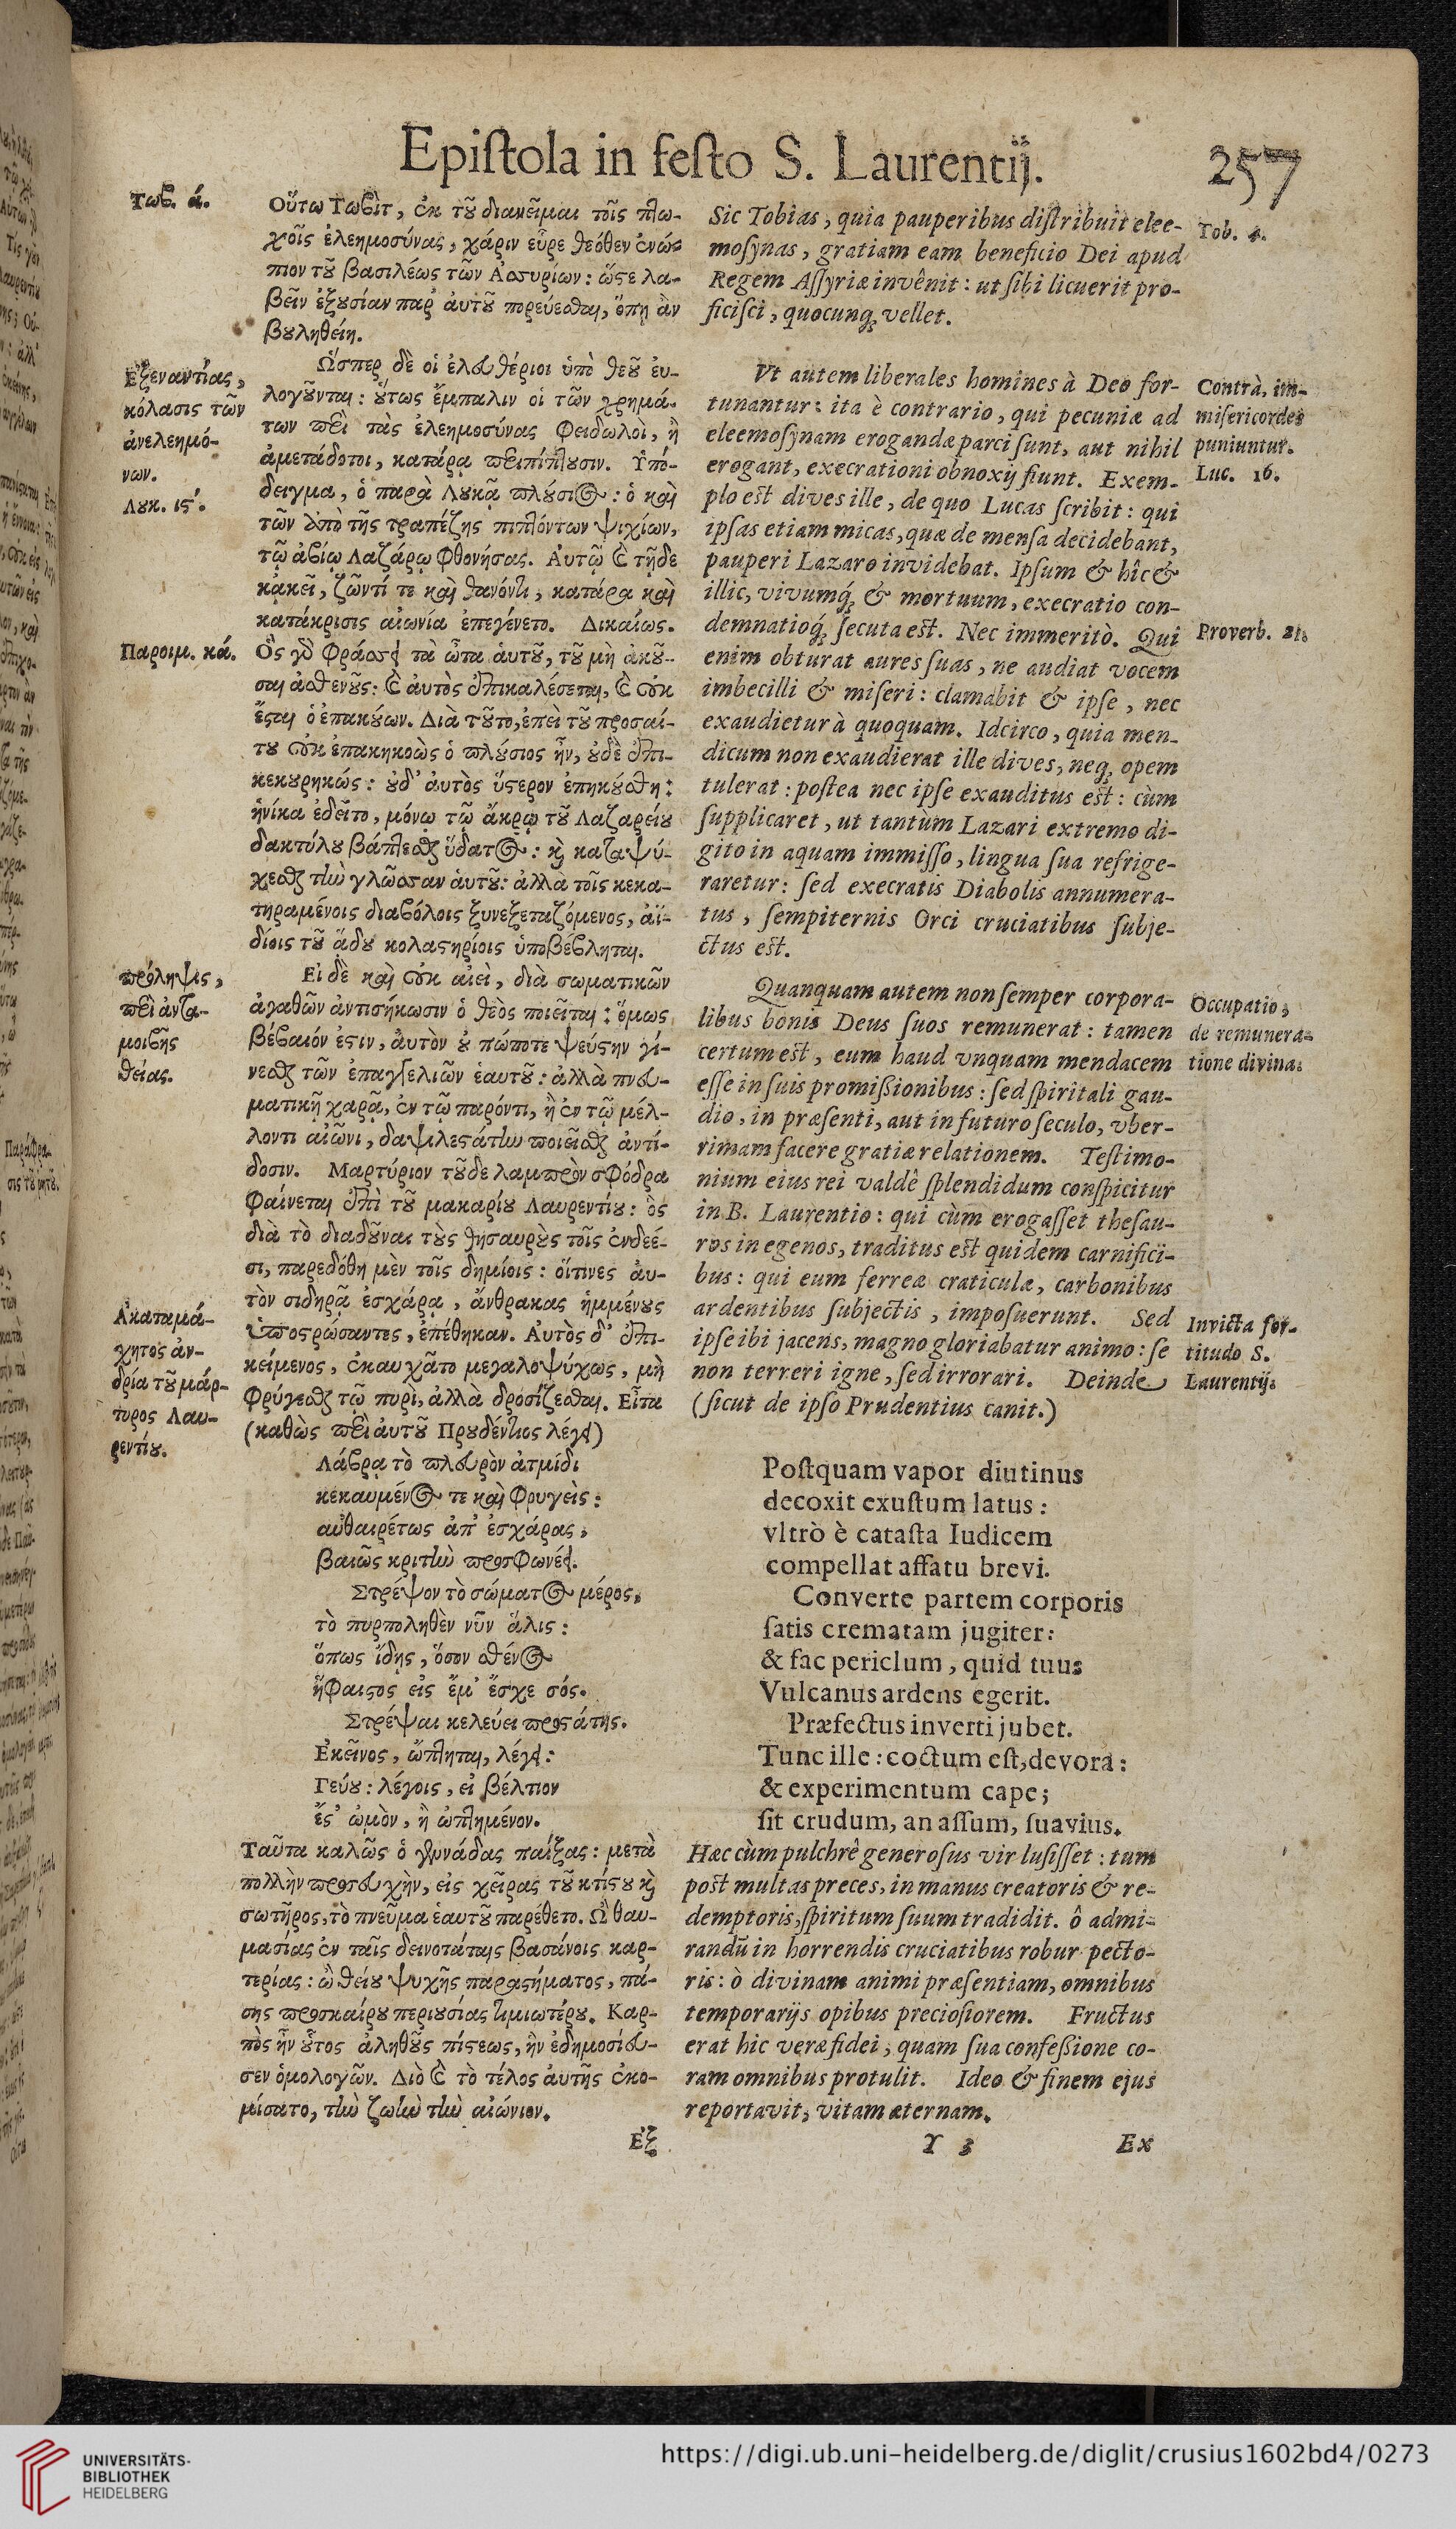 Epiſtola in feſto S. Laurentij.
257
Τωβ. ά.
Οὕτω Τωβὶτ, ἐκ τοῦ διανεῖμαι τοῖς πτω-
χοῖς ἐλεημοσύνας, χάριν εὗρε θεόθεν ἐνώ-
πιον τοῦ βασιλέως τῶν Ἀσσυρίων: ὥστε λα-
βεῖν ἐξουσίαν παρ' ἀυτοῦ πορεύεσθαι, ὅπη ἂν
βουληθείη.
Ἐξεναντίας,
κόλασις τῶν
ἀνελεημό-
νων.
Λουκ. ιϛ'.
Ὥσπερ δὲ οἱ ἐλευθέριοι ὑπὸ θεοῦ ἐυ-
λογοῦνται: οὕτως ἔμπαλιν οἱ τῶν χρημά-
των περὶ τὰς ἐλεημοσύνας φειδωλοὶ, ἢ
ἀμετάδοτοι, κατάρᾳ περιπίπτουσιν. Ὑπό-
δειγμα, ὁ παρὰ Λουκᾷ πλούσιος: ὁ καὶ
τῶν ἀπὸ τῆς τραπέζης πιπτόντων ψιχίων,
τῷ ἀβίῳ Λαζάρῳ φθονήσας. Ἀυτῷ καὶ τῇδε
κἀκεῖ, ζῶντί τε καὶ θανόντι, κατάρα καὶ
κατάκρισις αἰωνία ἐπεγένετο. Δικαίως.
Παροιμ. κά.
Ὃς γὰρ φράσσει τὰ ὦτα ἁυτοῦ, τοῦ μὴ ἀκοῦ-
σαι ἀσθενοῦς: καὶ ἀυτὸς ἐπικαλέσεται, καὶ οὐκ
ἔσται ὁ ἐπακούων. Διὰ τοῦτο, ἐπεὶ τοῦ προσαί-
του οὐκ ἐπακηκοὼς ὁ πλούσιος ἦν, οὐδὲ ἐπι-
κεκουρηκώς: οὐδ' ἀυτὸς ὕστερον ἐπηκούσθη:
ἡνίκα ἐδεῖτο, μόνῳ τῷ ἄκρῳ τοῦ Λαζαρείου
δακτύλου βάπτεσθαι ὕδατος: καὶ καταψύ-
χεσθαι τὴν γλῶσσαν ἁυτοῦ: ἀλλὰ τοῖς κεκα-
τηραμένοις διαβόλοις ξυνεξεταζόμενος, ἀϊ-
δίοις τοῦ ᾅδου κολαστηρίοις ὑποβέβληται.
πρόληψις,
περὶ ἀντα-
μοιβῆς
θείας.
Εἰ δὲ καὶ οὐκ αἰεὶ, διὰ σωματικῶν
ἀγαθῶν ἀντισήκωσιν ὁ θεὸς ποιεῖται: ὅμως
βέβαιόν ἐστιν, ἀυτὸν οὐ πώποτε ψεύστην γί-
νεσθαι τῶν ἐπαγγελιῶν ἑαυτοῦ: ἀλλὰ πνευ-
ματικῇ χαρᾷ, ἐν τῷ παρόντι, ἢ ἐν τῷ μέλ-
λοντι αἰῶνι, δαψιλεστάτην ποιεῖσθαι ἀντί-
δοσιν. Μαρτύριον τοῦδε λαμπρὸν σφόδρα
φαίνεται ἐπὶ τοῦ μακαρίου Λαυρεντίου: ὃς
διὰ τὸ διαδοῦναι τοὺς θησαυροὺς τοῖς ἐνδεέ-
σι, παρεδόθη μὲν τοῖς δημίοις: οἵτινες ἀυ-
τὸν σιδηρᾷ ἐσχάρᾳ, ἄνθρακας ἡμμένους
ὑποστρώσαντες, ἐπέθηκαν. Ἀυτὸς δ' ἐπι-
κείμενος, ἐκαυχᾶτο μεγαλοψύχως, μὴ
φρύγεσθαι τῷ πυρὶ, ἀλλὰ δροσίζεσθαι. Εἶτα
(καθὼς περὶ ἀυτοῦ Προυδέντιος λέγει)
Ἀκαταμά-
χητος ἀν-
δρία τοῦ μάρ-
τυρος Λαυ-
ρεντίου.
Λάβρᾳ τὸ πλευρὸν ἀτμίδι
κεκαυμένος τε καὶ φρυγεὶς:
αὐθαιρέτως ἀπ' ἐσχάρας,
βαιῶς κριτὴν προσφωνέει.
Στρέψον τὸ σώματος μέρος,
τὸ πυρποληθὲν νῦν ἅλις:
ὅπως ἴδῃς, ὅσον σθένος
ἥφαιστος εἰς ἔμ' ἔσχε σός.
Στρέψαι κελεύει προστάτης.
Ἐκεῖνος, ὤπτηται, λέγει:
Γεύου: λέγοις, εἰ βέλτιον
ἔστ' ὠμὸν, ἢ ὠπτημένον.
Ταῦτα καλῶς ὁ γεννάδας παίξας: μετὰ
πολλὴν προσευχὴν, εἰς χεῖρας τοῦ κτίστου καὶ
σωτῆρος, τὸ πνεῦμα ἑαυτοῦ παρέθετο. Ὢ θαυ-
μασίας ἐν ταῖς δεινοτάταις βασάνοις καρ-
τερίας: ὢ θείου ψυχῆς παραστήματος, πά-
σης προσκαίρου περιουσίας τιμιωτέρου. Καρ-
πὸς ἦν οὗτος ἀληθοῦς πίστεως, ἣν ἐδημοσίευ-
σεν ὁμολογῶν. Διὸ καὶ τὸ τέλος ἀυτῆς ἐκο-
μίσατο, τὴν ζωὴν τὴν αἰώνιον.
Ἐξ
Sic Tobias, quia pauperibus diſtribuit elee-
moſynas, gratiam eam beneficio Dei apud
Regem Aſſyriæ invênit: ut ſibi licuerit pro-
ficiſci, quocunq; vellet.
Tob. 1.
Vt autem liberales homines à Deo for-
tunantur: ita è contrario, qui pecuniæ ad
eleemoſynam erogandæ parci ſunt, aut nihil
erogant, execrationi obnoxij fiunt. Exem-
plo eſt dives ille, de quo Lucas ſcribit: qui
ipſas etiam micas, quæ de menſa decidebant,
pauperi Lazaro invidebat. Ipſum & hîc &
illic, vivumq́; & mortuum, execratio con-
demnatioq́; ſecuta eſt. Nec immeritò. Qui
enim obturat aures ſuas, ne audiat vocem
imbecilli & miſeri: clamabit & ipſe, nec
exaudietur à quoquam. Idcirco, quia men-
dicum non exaudierat ille dives, neq; opem
tulerat: poſtea nec ipſe exauditus eſt: cùm
ſupplicaret, ut tantùm Lazari extremo di-
gito in aquam immiſſo, lingua ſua refrige-
raretur: ſed execratis Diabolis annumera-
tus, ſempiternis Orci cruciatibus ſubje-
ctus eſt.
Contrà, im-
miſericordes
puniuntur.
Luc. 16.
Proverb. 21.
Quanquam autem non ſemper corpora-
libus bonis Deus ſuos remunerat: tamen
certum eſt, eum haud vnquam mendacem
eſſe in ſuis promißionibus: ſed ſpiritali gau-
dio, in præſenti, aut in futuro ſeculo, vber-
rimam facere gratiæ relationem. Teſtimo-
nium eius rei valdê ſplendidum conſpicitur
in B. Laurentio: qui cùm erogaſſet theſau-
ros in egenos, traditus eſt quidem carnifici-
bus: qui eum ferreæ craticulæ, carbonibus
ardentibus ſubjectis, impoſuerunt. Sed
ipſe ibi jacens, magno gloriabatur animo: ſe
non terreri igne, ſed irrorari. Deinde
(ſicut de ipſo Prudentius canit.)
Occupatio,
de remunera-
tione divina.
Invicta for-
titudo S.
Laurentij.
Poſtquam vapor diutinus
decoxit exuſtum latus:
vltrò è cataſta Iudicem
compellat affatu brevi.
Converte partem corporis
ſatis crematam jugiter:
& fac periclum, quid tuus
Vulcanus ardens egerit.
Præfectus inverti jubet.
Tunc ille: coctum eſt, devora:
& experimentum cape;
ſit crudum, an aſſum, ſuavius.
Hæc cùm pulchrê generoſus vir luſiſſet: tum
poſt multas preces, in manus creatoris & re-
demptoris, ſpiritum ſuum tradidit. ô admi-
randũ in horrendis cruciatibus robur pecto-
ris: ò divinam animi præſentiam, omnibus
temporarijs opibus precioſiorem. Fructus
erat hic veræ fidei, quam ſua confeßione co-
ram omnibus protulit. Ideo & finem ejus
reportavit, vitam æternam.
Y 3
Ex
UNIVERSITÄTS-
BIBLIOTHEK
HEIDELBERG
https://digi.ub.uni-heidelberg.de/diglit/crusius1602bd4/0273